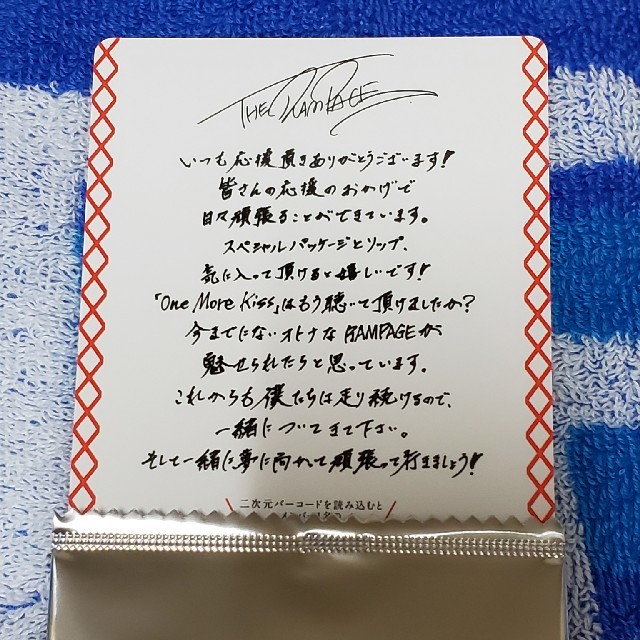 THE RAMPAGE
いつも応援頂きありがとうございます!
皆さんの応援のおかげで
日々頑張ることができています。
スペシャルパッケージとソップ、
気に入って頂けると嬉しいです!
「One More Kiss」はもう聴いて頂けましたか?
今までにないオトナなRAMPAGEが
魅せられたらと思っています。
これからも僕たちは走り続けるので、
一緒についてきて下さい。
そして一緒に夢に向かって頑張って行きましょう!
二次元バーコードを読み込むと